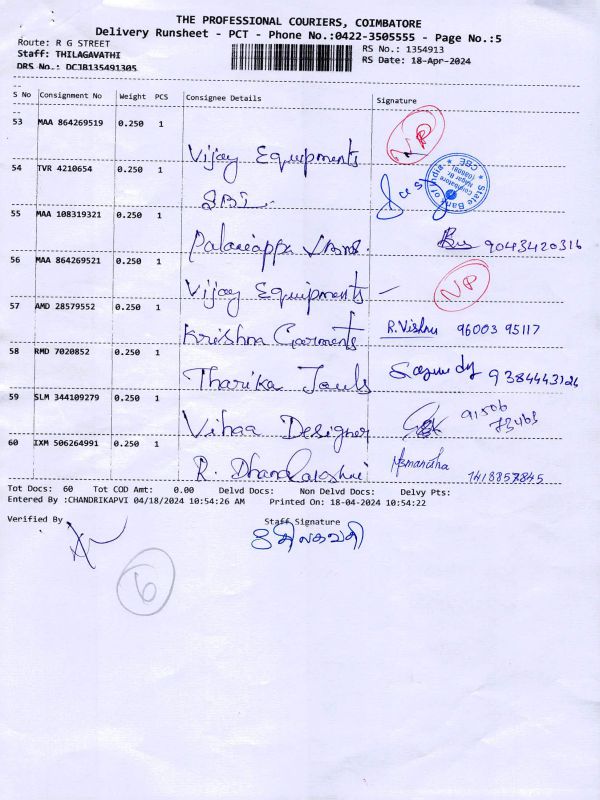 THE PROFESSIONAL COURIERS, COIMBATORE
Delivery Runsheet - PCT - Phone No.:0422-3505555 - Page No.:5
Route: R G STREET
RS No.: 1354913
Staff: THILAGAVATHI
RS Date: 18-Apr-2024
DRS No.: DCJB135491305
S No Consignment No Weight PCS Consignee Details Signature
53 MAA 864269519 0.250 1 Vijay Equipments NP
54 TVR 4210654 0.250 1 SBI
State Bank of India
55 MAA 108319321 0.250 1 Palaniappa 9043420316
56 MAA 864269521 0.250 1 Vijay Equipments — NP
57 AMD 28579552 0.250 1 Krishna Garments R.Vishnu 96003 95117
58 RMD 7020852 0.250 1 Tharika 9384443126
59 SLM 344109279 0.250 1 Vihaa Designer 91506
73463
60 IXM 506264991 0.250 1 R. Dhanalakshmi
Tot Docs: 60 Tot COD Amt: 0.00 Delvd Docs: Non Delvd Docs: Delvy Pts:
Entered By :CHANDRIKAPVI 04/18/2024 10:54:26 AM Printed On: 18-04-2024 10:54:22
Verified By
Staff Signature
திலகவதி
6